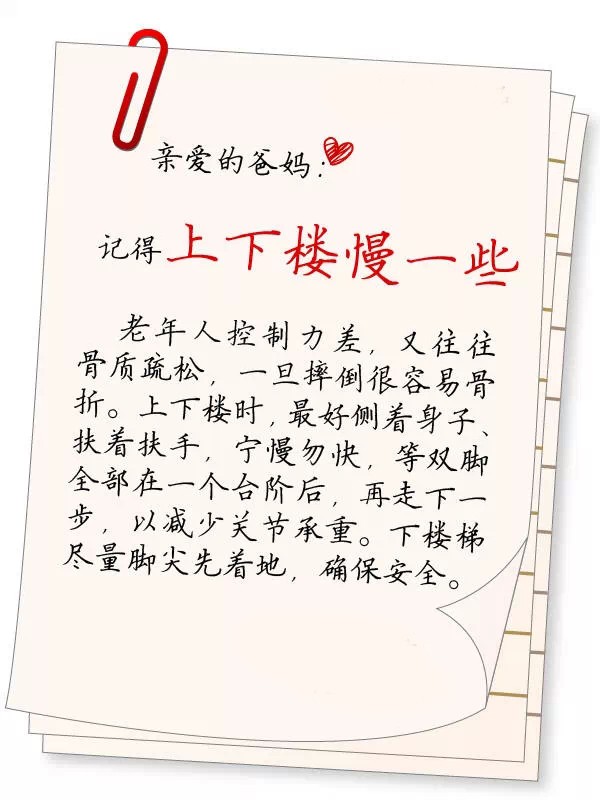 亲爱的爸妈：
记得上下楼慢一些
老年人控制力差，又往往
骨质疏松，一旦摔倒很容易骨
折。上下楼时，最好侧着身子、
扶着扶手，宁慢勿快，等双脚
全部在一个台阶后，再走下一
步，以减少关节承重。下楼梯
尽量脚尖先着地，确保安全。